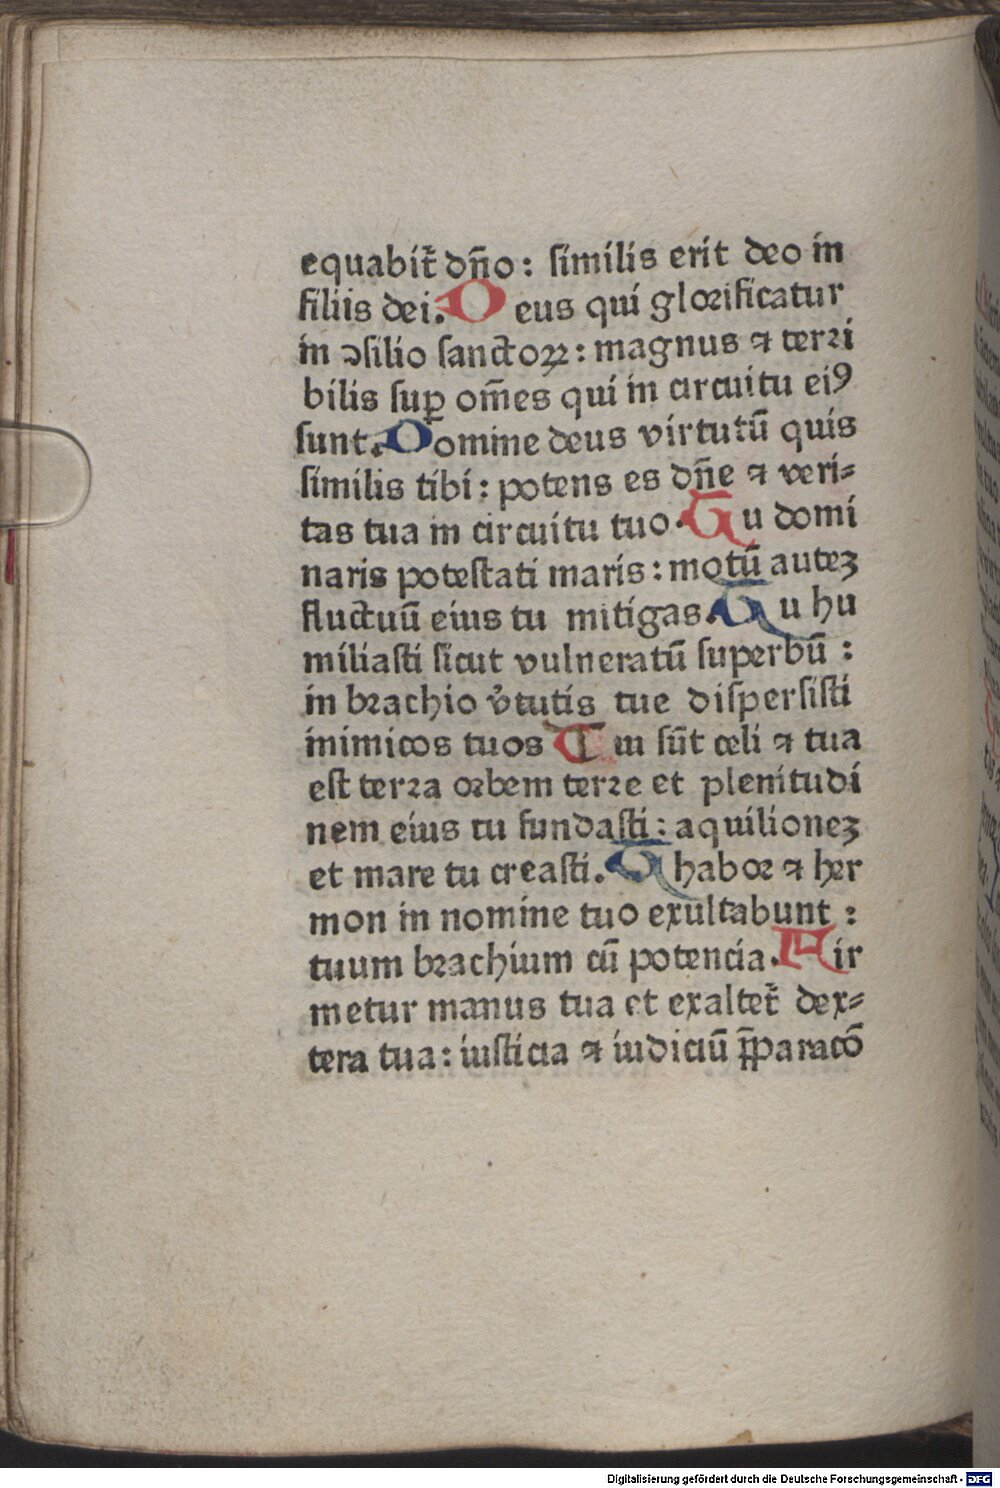 equabit᷑ dn̄o : ſimilis erit deo in
filiis dei. Deus qui gloꝛificatur
in ↄſilio ſanctoꝝ : magnus ⁊ terꝛi
bilis ſuꝑ om̄es qui in circuitu eiꝰ
ſunt. Domine deus virtutū quis
ſimilis tibi : potens es dn̄e ⁊ veri⸗
tas tua in circuitu tuo. Tu domi
naris poteſtati maris : motū auteꝫ
fluctuū eius tu mitigas. Tu hu
miliaſti ſicut vulneratū ſuperbū :
in bꝛachio v̓tutis tue diſperſiſti
inimicos tuos Tui ſūt celi ⁊ tua
eſt terꝛa oꝛbem terꝛe et plenitudi
nem eius tu fundaſti : aquilioneꝫ
et mare tu creaſti. Thaboꝛ ⁊ her
mon in nomine tuo exultabunt :
tuum bꝛachium cū potencia. Fir
metur manus tua et exaltet᷑ dex⸗
tera tua : iuſticia ⁊ iudiciū p̄paracō
Digitalisierung gefördert durch die Deutsche Forschungsgemeinschaft - DFG